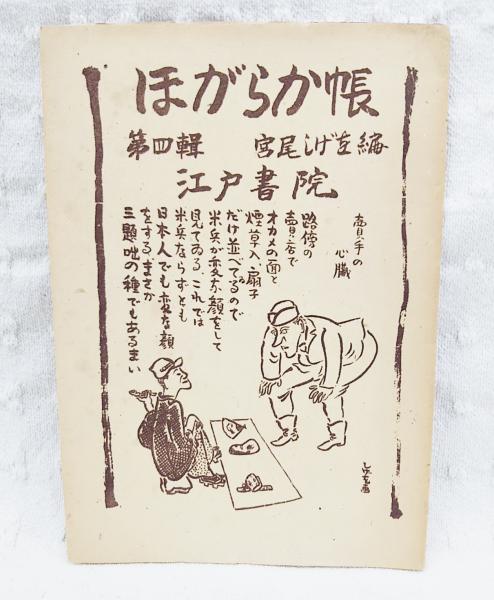 ほがらか帳
第四輯　宮尾しげを編
江戸書院
賣手の
心臓
路傍の
賣店で
オカメの面と
煙草入、扇子
だけ並べてゐるので
米兵が変な顔をして
見てゐる、これでは
米兵ならずとも
日本人でも変な顔
をする、まさか
三題咄の種でもあるまい